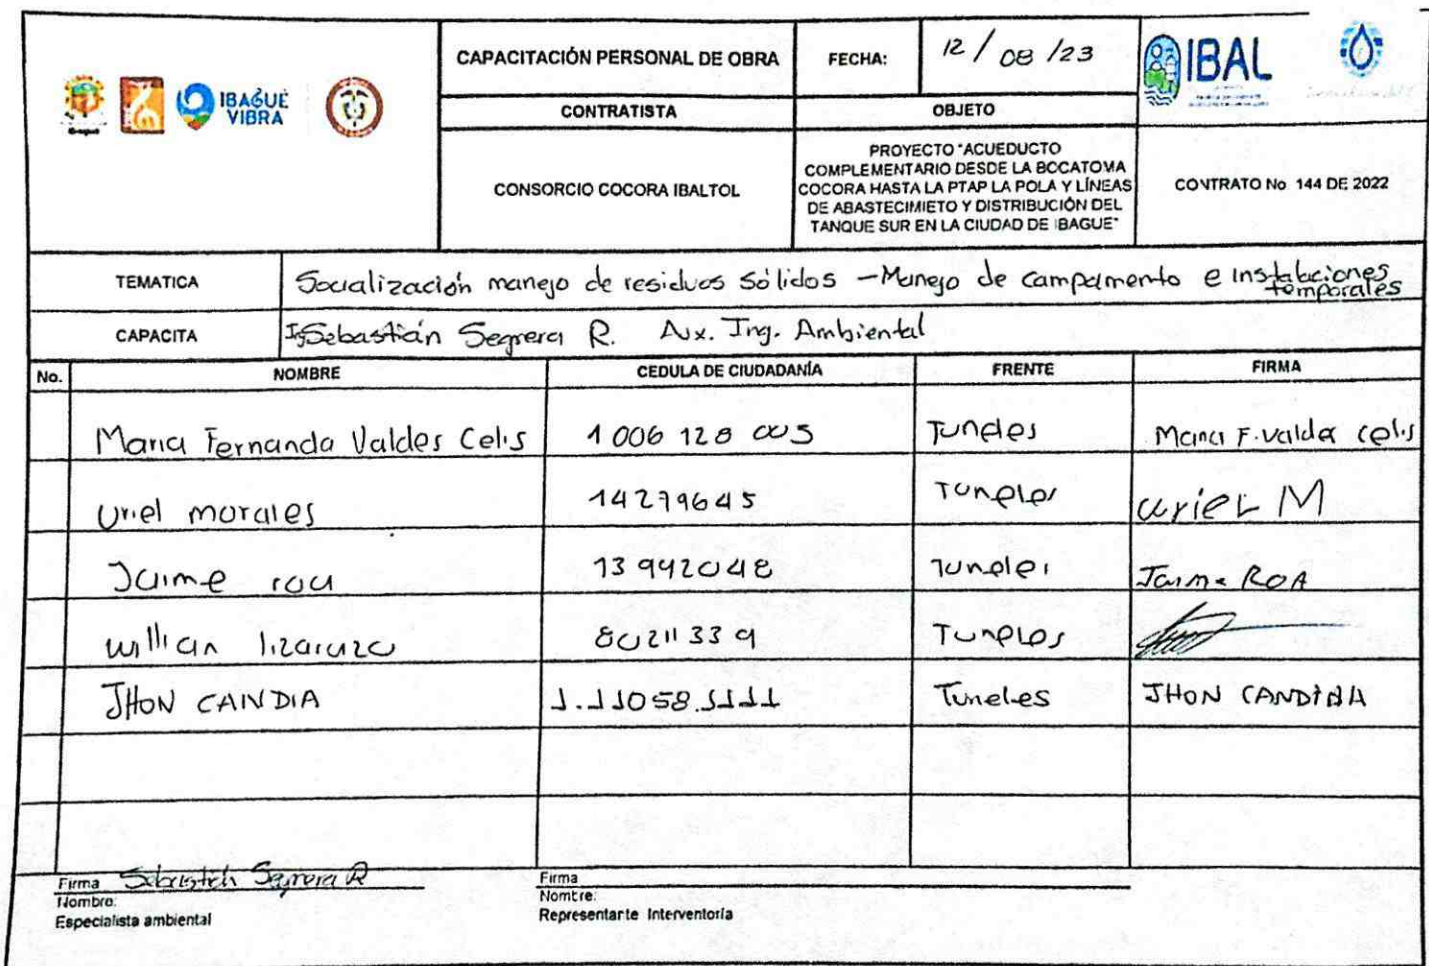 Ibagué
IBAGUÉ
VIBRA
CAPACITACIÓN PERSONAL DE OBRA
FECHA:
12/08/23
IBAL
CONTRATISTA
OBJETO
CONSORCIO COCORA IBALTOL
PROYECTO "ACUEDUCTO
COMPLEMENTARIO DESDE LA BOCATOMA
COCORA HASTA LA PTAP LA POLA Y LÍNEAS
DE ABASTECIMIETO Y DISTRIBUCIÓN DEL
TANQUE SUR EN LA CIUDAD DE IBAGUE"
CONTRATO No. 144 DE 2022
TEMATICA
Socialización manejo de residuos sólidos - Manejo de campamento e instalaciones
temporales
CAPACITA
Ing Sebastián Segrera R. Aux. Ing. Ambiental
No.
NOMBRE
CEDULA DE CIUDADANÍA
FRENTE
FIRMA
Maria Fernanda Valdes Celis
1006 128 005
Tuneles
Maria F. Valdes Celis
Uriel morales
14279645
Tuneles
uriel M
Jaime roa
13942048
Tuneles
Jaime ROA
willian lizarazo
80211339
Tuneles
JHON CANDIA
1.11058.1111
Tuneles
JHON CANDIA
Firma Sebastián Segrera R
Nombre:
Especialista ambiental
Firma
Nombre:
Representante Interventoría